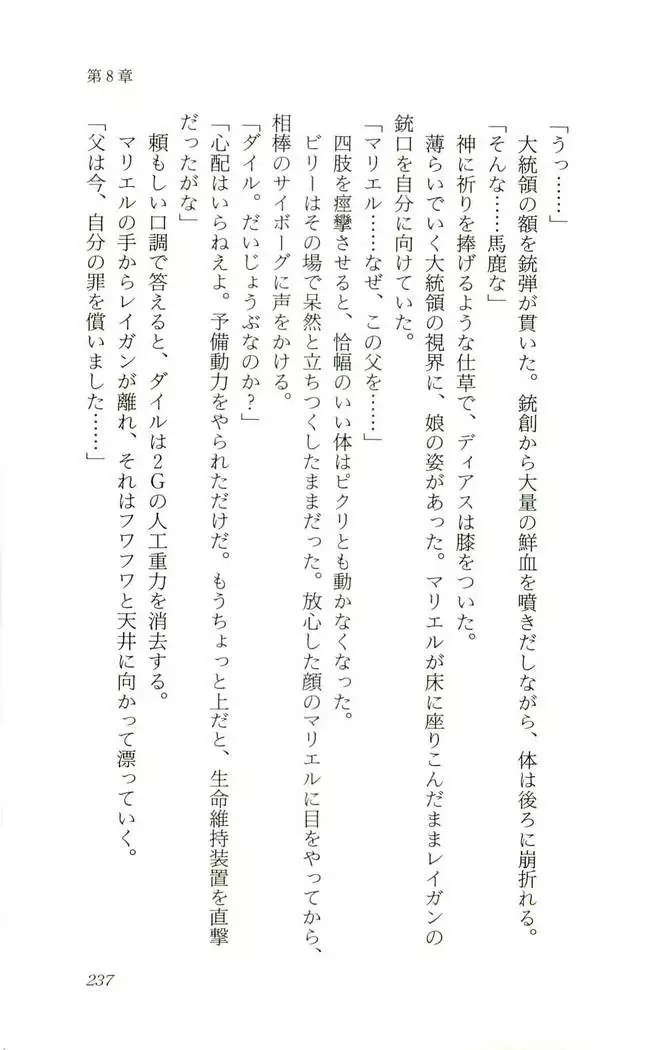 第8章
「うっ……」
大統領の額を銃弾が貫いた。銃創から大量の鮮血を噴きだしながら、体は後ろに崩折れる。
「そんな……馬鹿な」
神に祈りを捧げるような仕草で、ディアスは膝をついた。
薄らいでいく大統領の視界に、娘の姿があった。マリエルが床に座りこんだままレイガンの
銃口を自分に向けていた。
「マリエル……なぜ、この父を……」
四肢を痙攣させると、恰幅のいい体はピクリとも動かなくなった。
ビリーはその場で呆然と立ちつくしたままだった。放心した顔のマリエルに目をやってから、
相棒のサイボーグに声をかける。
「ダイル。だいじょうぶなのか?」
「心配はいらねえよ。予備動力をやられただけだ。もうちょっと上だと、生命維持装置を直撃
だったがな」
頼もしい口調で答えると、ダイルは2Gの人工重力を消去する。
マリエルの手からレイガンが離れ、それはフワフワと天井に向かって漂っていく。
「父は今、自分の罪を償いました……」
237